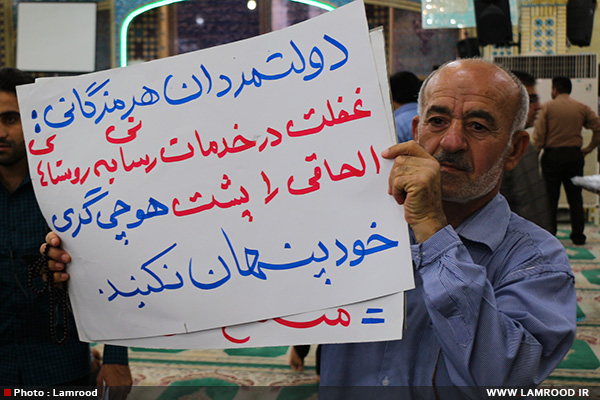 دولتمردان هرمزگانی:
غفلت در خدمات رسانی به روستاهای
الحاقی را پشت هوچی گری
خود پنهان نکنید.
=
Photo : Lamrood
WWW.LAMROOD.IR